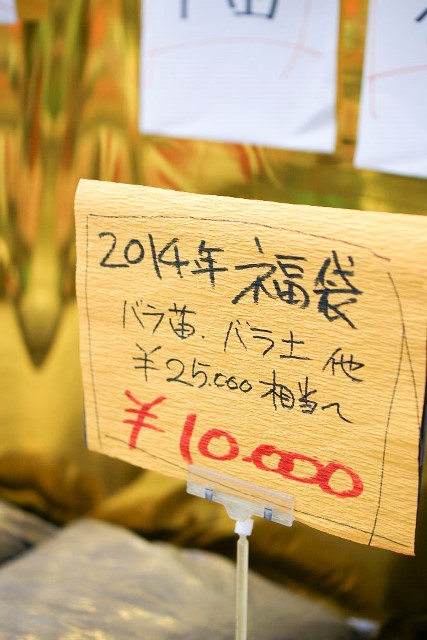 2014年 福袋
バラ苗. バラ土 他
¥25.000 相当へ
¥10.000